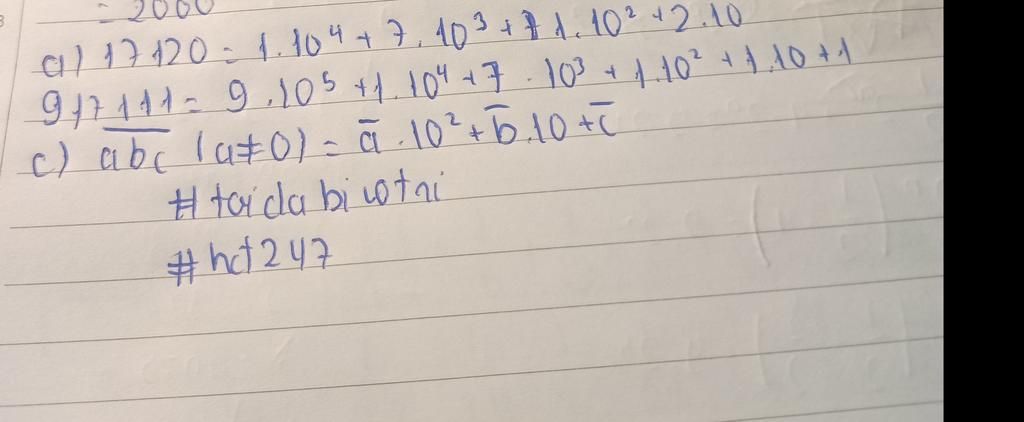 = 2000
a) 17120 = 1.10⁴ + 7.10³ + 1.10² + 2.10
917111 = 9.10⁵ + 1.10⁴ + 7.10³ + 1.10² + 1.10 + 1
c) a̅b̅c̅ (a≠0) = a̅.10² + b̅.10 + c̅
# toidabicotni
# hct247